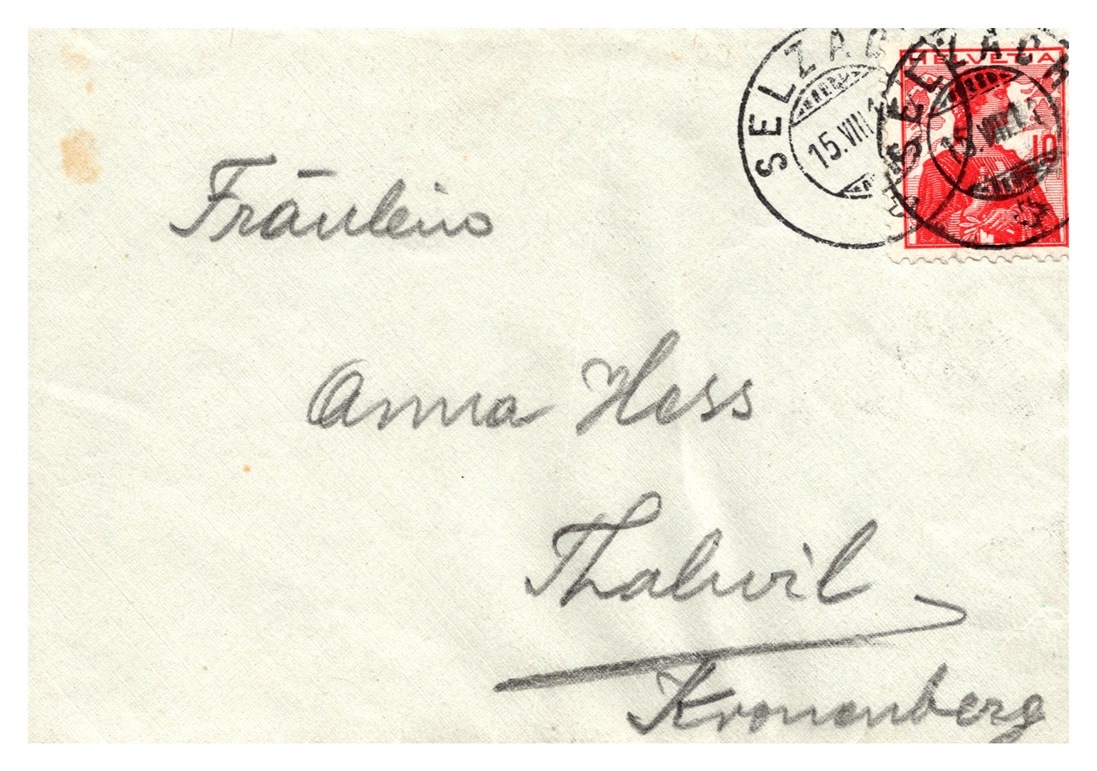 SELZACH
15.VIII.1
SELZACH
HELVETIA
10
Fräulein
Anna Hess
Thalwil
Kronenberg